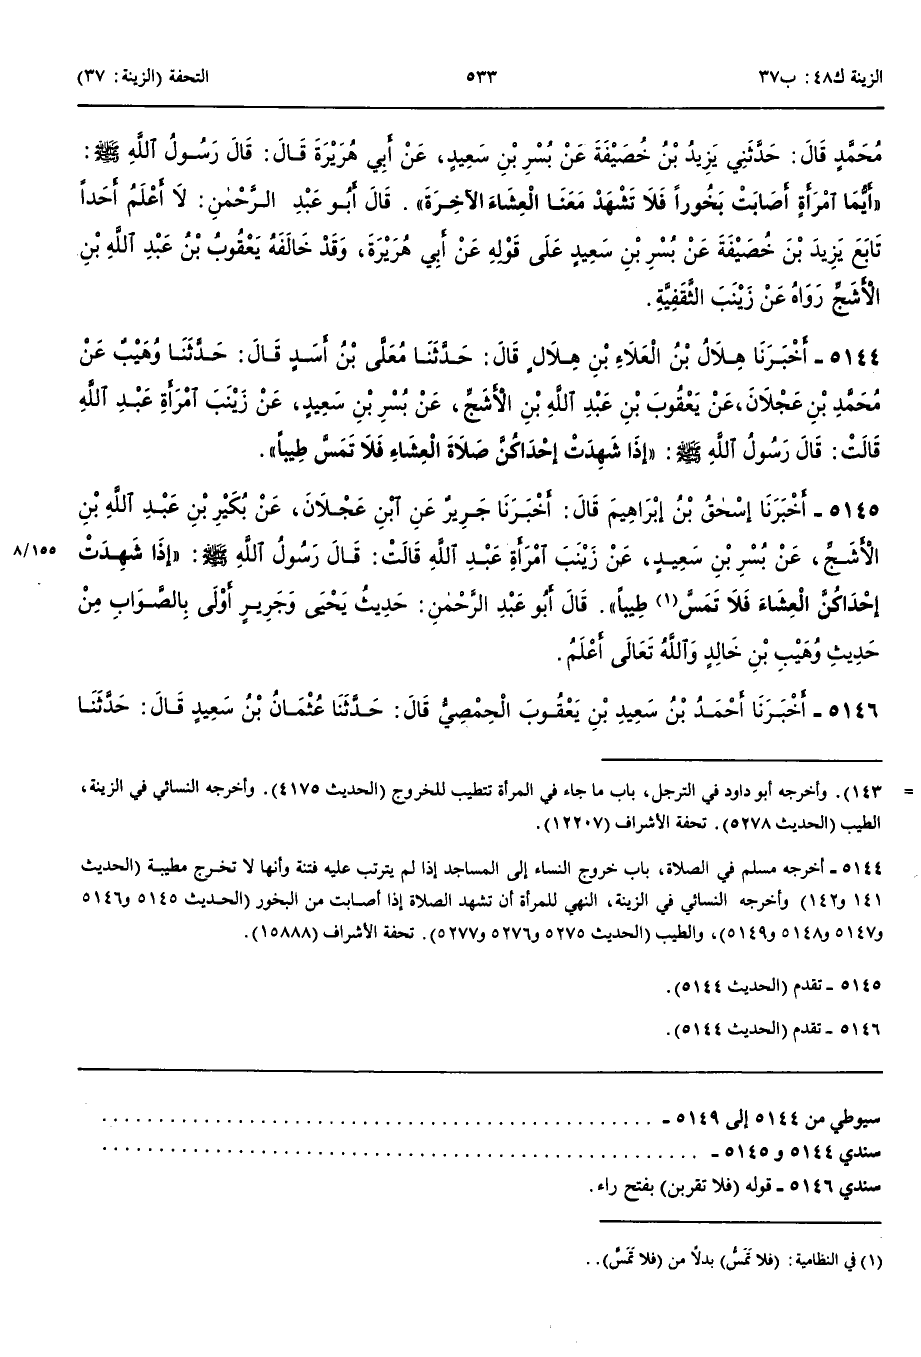 الزينة ك٤٨: ب٣٧ ٥٣٣ التحفة (الزينة: ٣٧)
مُحَمَّدٍ قَالَ: حَدَّثَنِي يَزِيدُ بْنُ خُصَيْفَةَ عَنْ بُسْرِ بْنِ سَعِيدٍ، عَنْ أَبِي هُرَيْرَةَ قَالَ: قَالَ رَسُولُ ٱللَّهِ ﷺ:
«أَيُّمَا ٱمْرَأَةٍ أَصَابَتْ بَخُوراً فَلَا تَشْهَدْ مَعَنَا الْعِشَاءَ الآخِرَةَ». قَالَ أَبُو عَبْدِ الرَّحْمٰنِ: لَا أَعْلَمُ أَحَداً
تَابَعَ يَزِيدَ بْنَ خُصَيْفَةَ عَنْ بُسْرِ بْنِ سَعِيدٍ عَلَى قَوْلِهِ عَنْ أَبِي هُرَيْرَةَ، وَقَدْ خَالَفَهُ يَعْقُوبُ بْنُ عَبْدِ اللَّهِ بْنِ
الْأَشَجِّ رَوَاهُ عَنْ زَيْنَبَ الثَّقَفِيَّةِ.
٥١٤٤ ـ أَخْبَرَنَا هِلَالُ بْنُ الْعَلَاءِ بْنِ هِلَالٍ قَالَ: حَدَّثَنَا مُعَلَّى بْنُ أَسَدٍ قَالَ: حَدَّثَنَا وُهَيْبٌ عَنْ
مُحَمَّدِ بْنِ عَجْلَانَ، عَنْ يَعْقُوبَ بْنِ عَبْدِ ٱللَّهِ بْنِ الْأَشَجِّ، عَنْ بُسْرِ بْنِ سَعِيدٍ، عَنْ زَيْنَبَ ٱمْرَأَةِ عَبْدِ ٱللَّهِ
قَالَتْ: قَالَ رَسُولُ ٱللَّهِ ﷺ: «إِذَا شَهِدَتْ إِحْدَاكُنَّ صَلَاةَ الْعِشَاءِ فَلَا تَمَسَّ طِيباً».
٥١٤٥ ـ أَخْبَرَنَا إِسْحٰقُ بْنُ إِبْرَاهِيمَ قَالَ: أَخْبَرَنَا جَرِيرٌ عَنِ ٱبْنِ عَجْلَانَ، عَنْ بُكَيْرِ بْنِ عَبْدِ ٱللَّهِ بْنِ
الْأَشَجِّ، عَنْ بُسْرِ بْنِ سَعِيدٍ، عَنْ زَيْنَبَ ٱمْرَأَةِ عَبْدِ ٱللَّهِ قَالَتْ: قَالَ رَسُولُ ٱللَّهِ ﷺ: «إِذَا شَهِدَتْ ٨/١٥٥
إِحْدَاكُنَّ الْعِشَاءَ فَلَا تَمَسَّ(١) طِيباً». قَالَ أَبُو عَبْدِ الرَّحْمٰنِ: حَدِيثُ يَحْيَى وَجَرِيرٍ أَوْلَى بِالصَّوَابِ مِنْ
حَدِيثِ وُهَيْبِ بْنِ خَالِدٍ وَٱللَّهُ تَعَالَى أَعْلَمُ.
٥١٤٦ ـ أَخْبَرَنَا أَحْمَدُ بْنُ سَعِيدِ بْنِ يَعْقُوبَ الْحِمْصِيُّ قَالَ: حَدَّثَنَا عُثْمَانُ بْنُ سَعِيدٍ قَالَ: حَدَّثَنَا
= ١٤٣). وأخرجه أبو داود في الترجل، باب ما جاء في المرأة تتطيب للخروج (الحديث ٤١٧٥). وأخرجه النسائي في الزينة،
الطيب (الحديث ٥٢٧٨). تحفة الأشراف (١٢٢٠٧).
٥١٤٤ ـ أخرجه مسلم في الصلاة، باب خروج النساء إلى المساجد إذا لم يترتب عليه فتنة وأنها لا تخرج مطيبة (الحديث
١٤١ و١٤٢) وأخرجه النسائي في الزينة، النهي للمرأة أن تشهد الصلاة إذا أصابت من البخور (الحديث ٥١٤٥ و٥١٤٦
و٥١٤٧ و٥١٤٨ و٥١٤٩)، والطيب (الحديث ٥٢٧٥ و٥٢٧٦ و٥٢٧٧). تحفة الأشراف (١٥٨٨٨).
٥١٤٥ ـ تقدم (الحديث ٥١٤٤).
٥١٤٦ ـ تقدم (الحديث ٥١٤٤).
سيوطي من ٥١٤٤ إلى ٥١٤٩ ـ . . . . . . . . . . . . . . . . . . . . . . . . . . . . . .
سندي ٥١٤٤ و ٥١٤٥ ـ . . . . . . . . . . . . . . . . . . . . . . . . . . . . . .
سندي ٥١٤٦ ـ قوله (فلا تقربن) بفتح راء.
(١) في النظامية: (فلا تَمَسُّ) بدلاً من (فلا تَمَسَّ). .